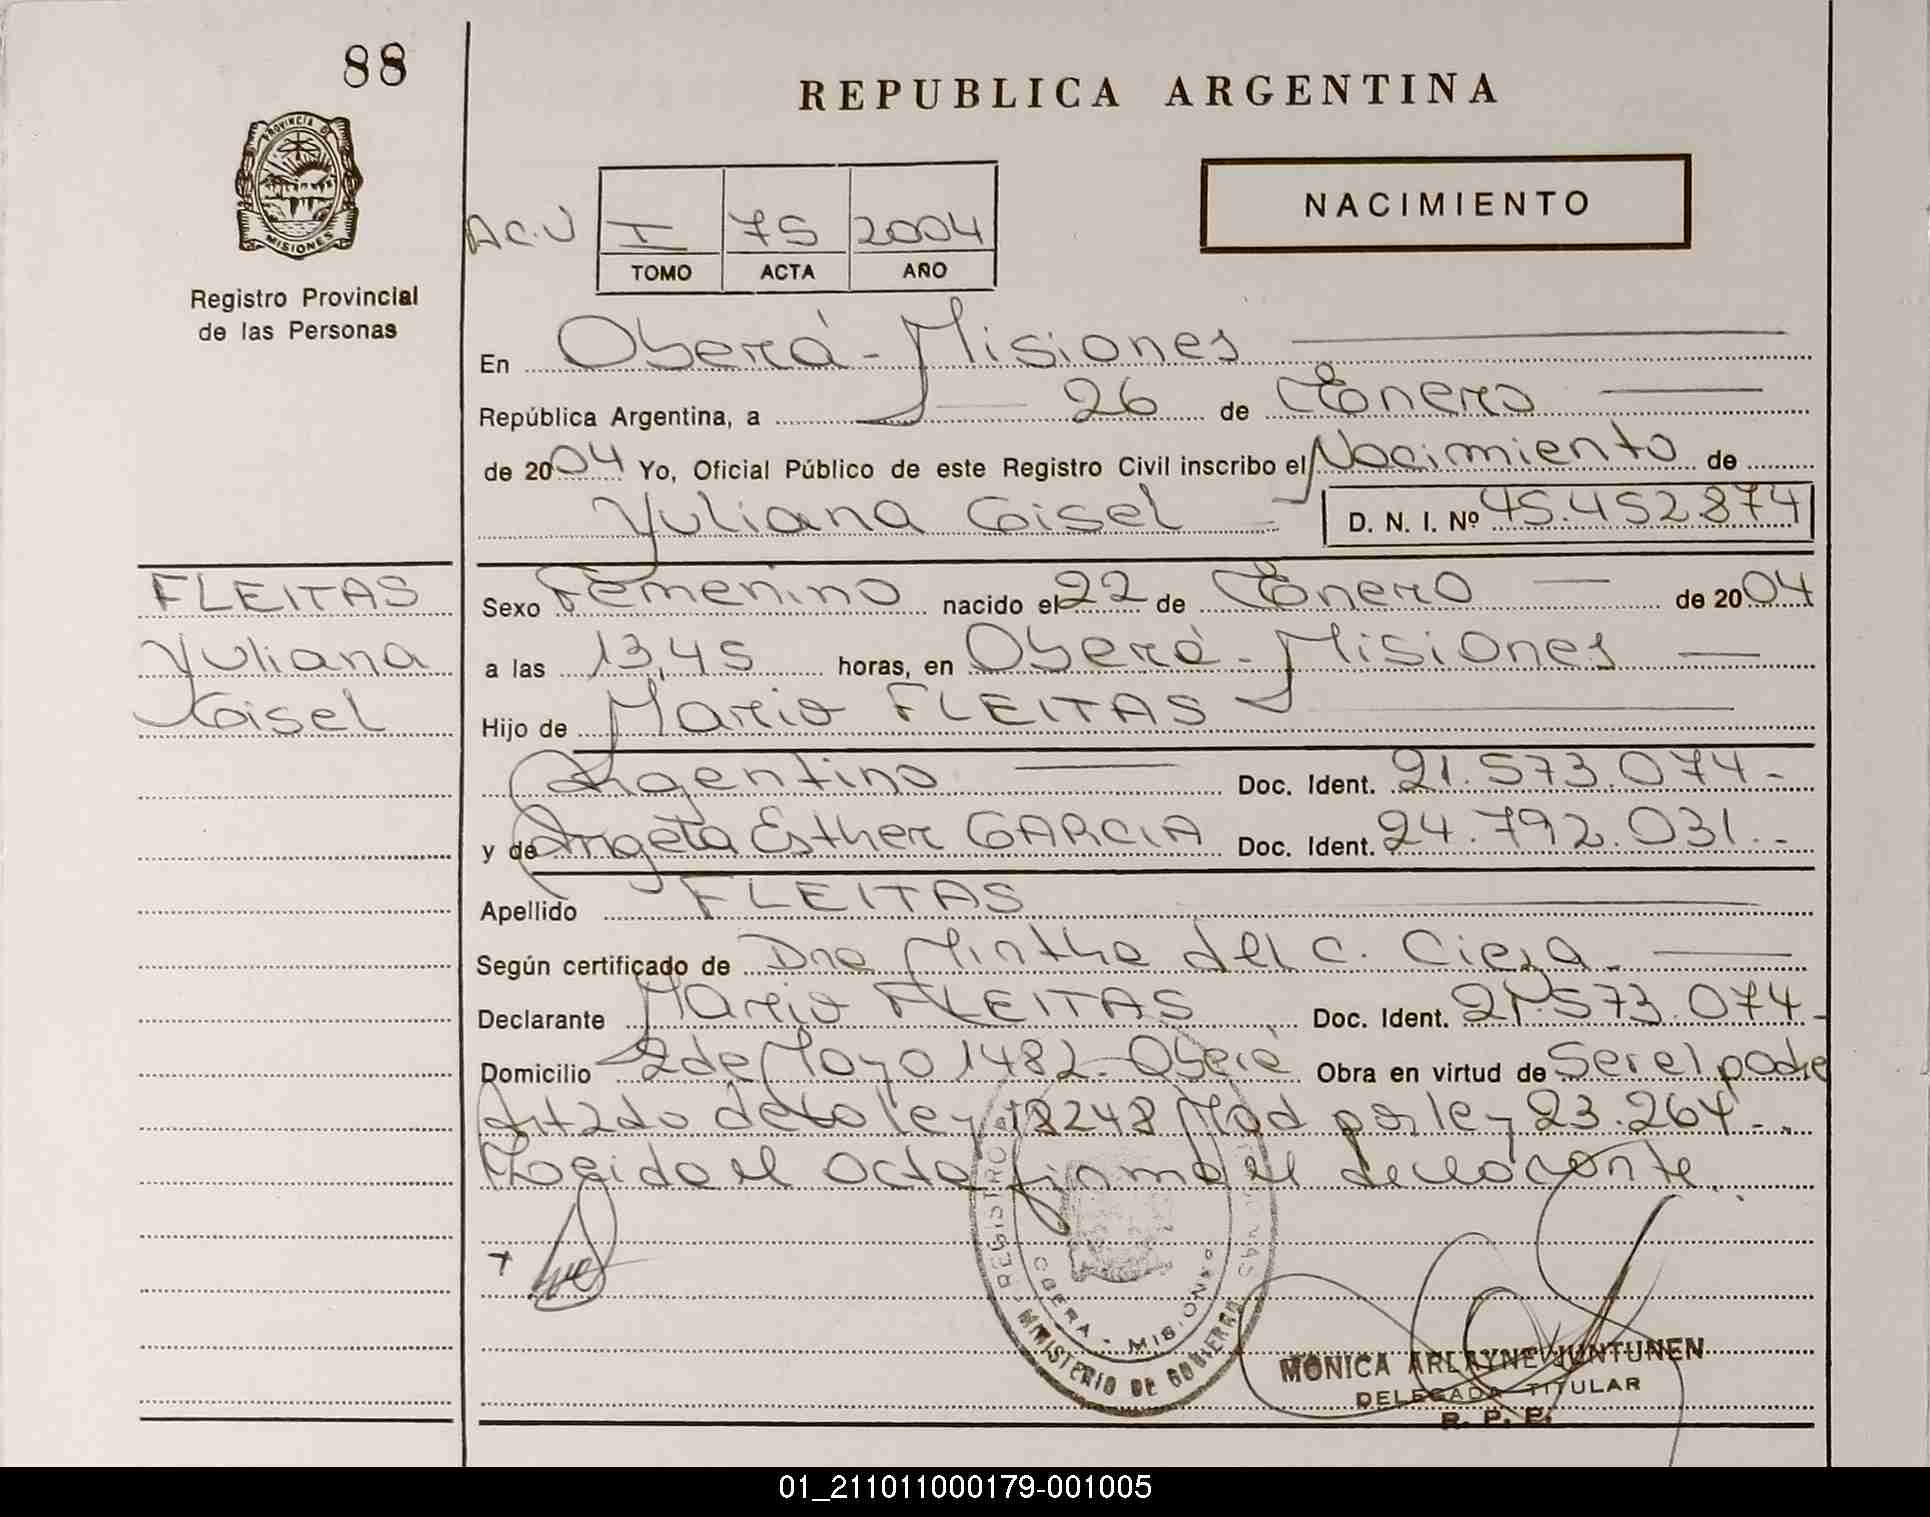 88
REPUBLICA ARGENTINA
PROVINCIA DE
MISIONES
NACIMIENTO
AC.U I 75 2004
TOMO ACTA AÑO
Registro Provincial
de las Personas
En Oberá - Misiones
República Argentina, a 26 de Enero
de 2004 Yo, Oficial Público de este Registro Civil inscribo el Nacimiento de
Yuliana Gisel D. N. I. Nº 45.452.874
FLEITAS
Yuliana
Gisel
Sexo Femenino nacido el 22 de Enero de 2004
a las 13,45 horas, en Oberá - Misiones
Hijo de Mario FLEITAS
Argentino Doc. Ident. 21.573.074-
y de Angela Esther GARCIA Doc. Ident. 24.792.031.-
Apellido FLEITAS
Según certificado de Dra Mirtha del C. Cieza
Declarante Mario FLEITAS Doc. Ident. 21.573.074-
Domicilio 2 de Mayo 1482 - Oberá Obra en virtud de Ser el padre
de la ley 18248 Mod por ley 23.264-
el acta firma el
REGISTRO
OBERA - MISIONES
MINISTERIO DE GOBIERNO
MONICA ARLAYNE JUNTUNEN
DELEGADA TITULAR
R. P. P.
01_211011000179-001005